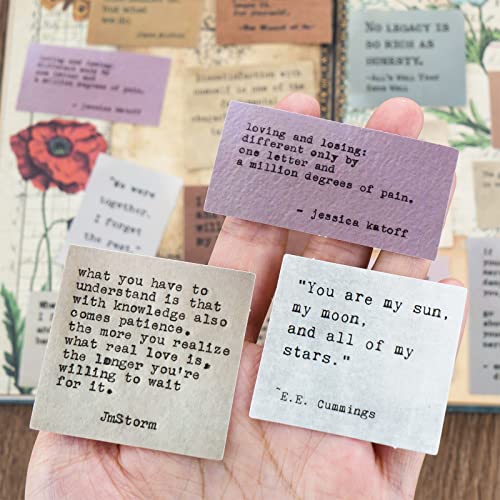 NO LEGACY IS
SO RICH AS
HONESTY.
loving and losing:
different only by
one letter and
a million degrees of pain.
- jessica katoff
Dissatisfaction with
oneself is one of the
"We were
together.
I forget
the rest."
loving and losing:
different only by
one letter and
a million degrees of pain.
- jessica katoff
what you have to
understand is that
with knowledge also
comes patience.
the more you realize
what real love is,
the longer you're
willing to wait
for it.
JmStorm
"You are my sun,
my moon,
and all of my
stars."
~E.E. Cummings